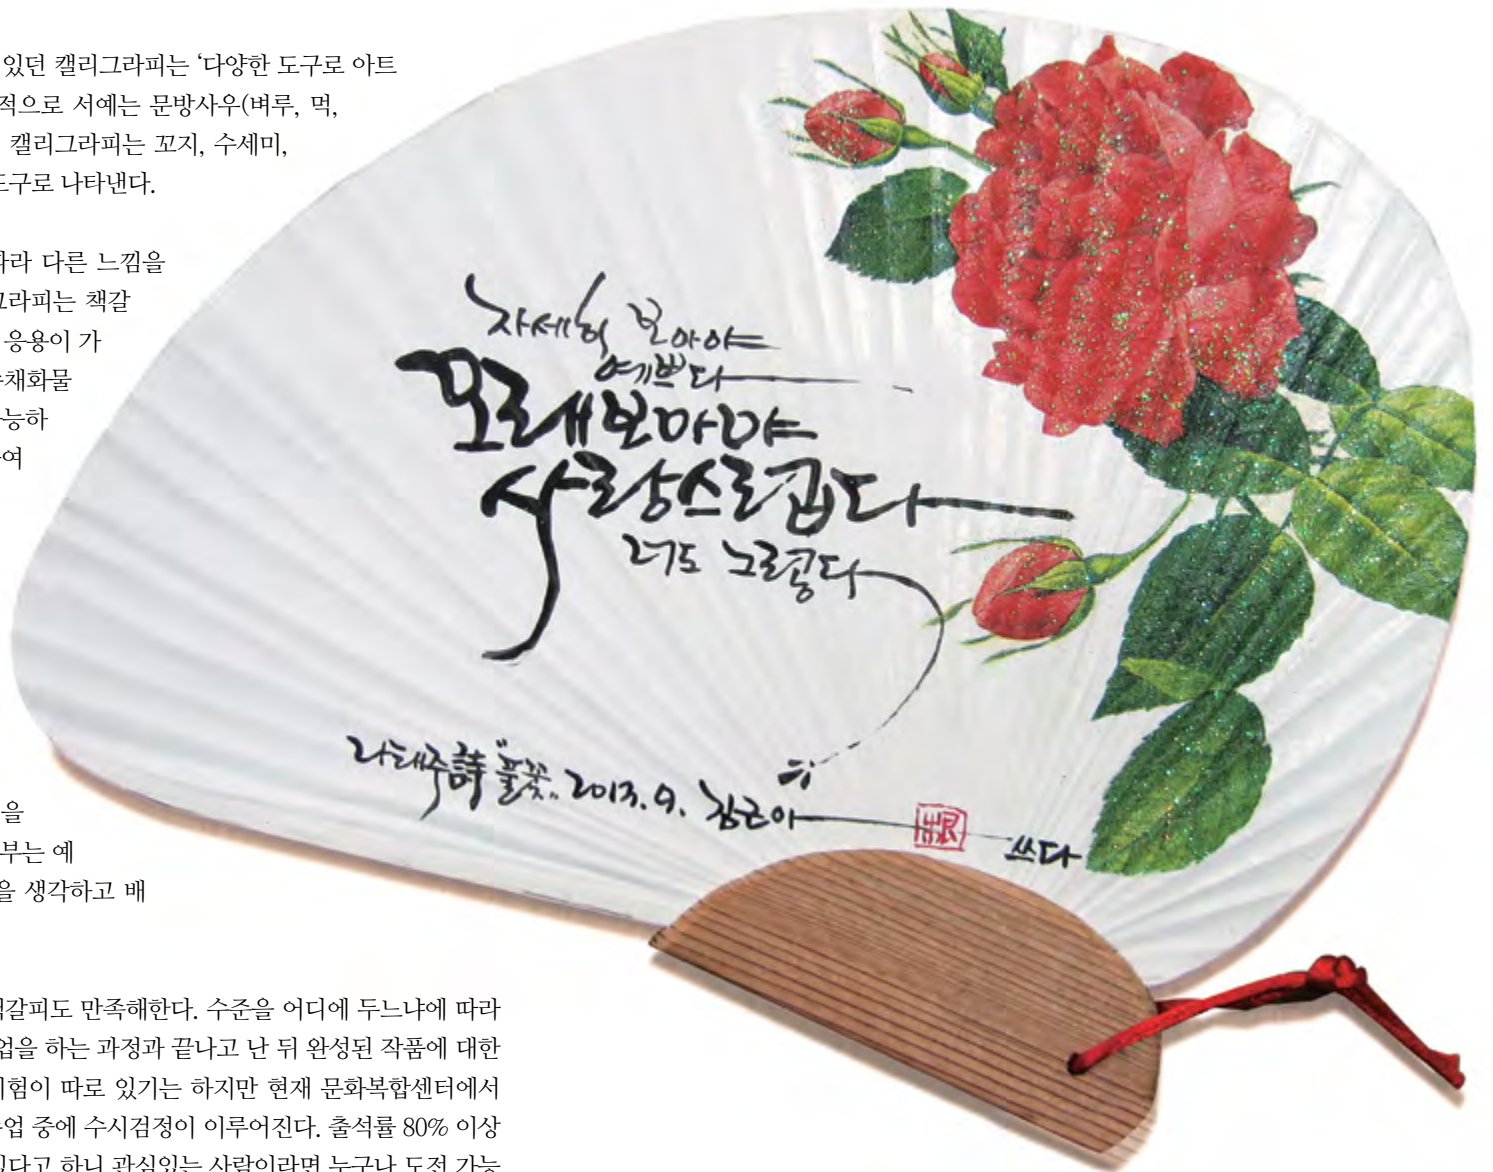 있던 캘리그라피는 ‘다양한 도구로 아트
적으로 서예는 문방사우(벼루, 먹,
캘리그라피는 꼬지, 수세미,
도구로 나타낸다.
따라 다른 느낌을
그라피는 책갈
응용이 가
수채화물
가능하
하여
을
부는 예
을 생각하고 배
책갈피도 만족해한다. 수준을 어디에 두느냐에 따라
업을 하는 과정과 끝나고 난 뒤 완성된 작품에 대한
시험이 따로 있기는 하지만 현재 문화복합센터에서
수업 중에 수시검정이 이루어진다. 출석률 80% 이상
있다고 하니 관심있는 사람이라면 누구나 도전 가능
자세히 보아야
예쁘다
오래보아야
사랑스럽다
너도 그렇다
나태주詩 "풀꽃" 2013. 9. 쓰다